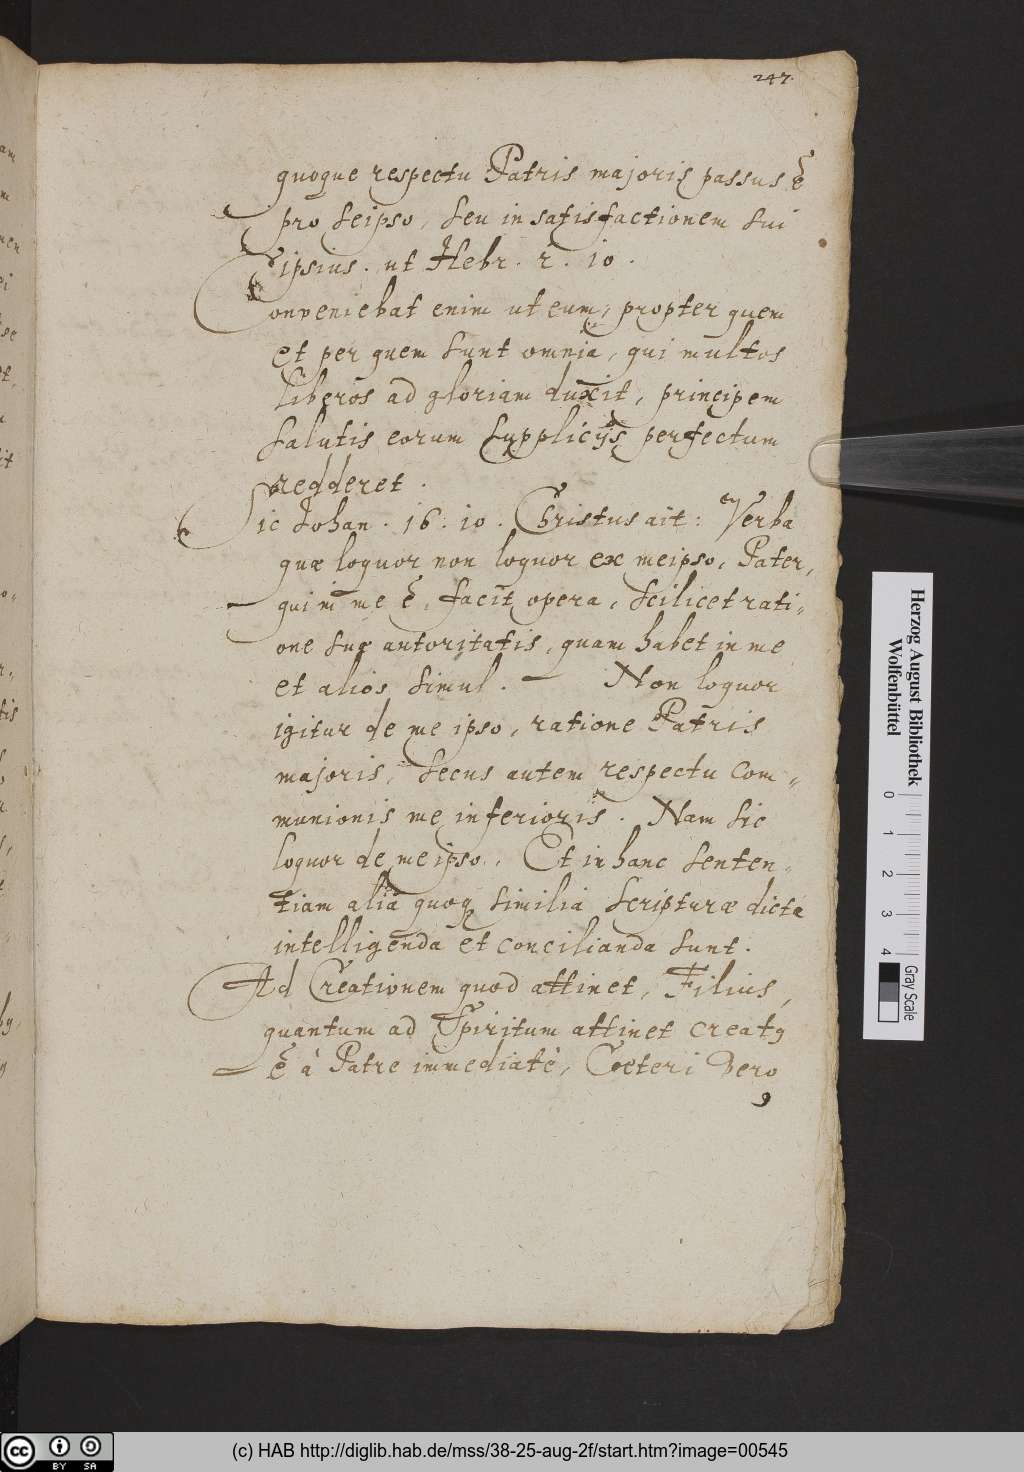 247.
quoque respectu Patris majoris passus ē
pro seipso, seu in satisfactionem sui
ipsius. ut Hebr. 2. 10.
Conveniebat enim ut eum, propter quem
et per quem sunt omnia, qui multos
liberos ad gloriam duxit, principem
salutis eorum supplicijs perfectum
redderet.
Sic Johan. 16. 10. Christus ait: Verba
quæ loquor non loquor ex meipso, Pater,
qui in me ē, facit opera, scilicet rati-
one suæ autoritatis, quam habet in me
et alios simul. — Non loquor
igitur de me ipso, ratione Patris
majoris, secus autem respectu com-
munionis me inferioris. Nam sic
loquor de meipso. Et in hanc senten-
tiam alia quoq similia scripturæ dicta
intelligenda et concilianda sunt.
Ad Creationem quod attinet, Filius,
quantum ad Spiritum attinet creatꝯ
ē à Patre immediatè, Cæteri vero
Herzog August Bibliothek
Wolfenbüttel
0 1 2 3 4
Gray Scale
cc BY SA
(c) HAB http://diglib.hab.de/mss/38-25-aug-2f/start.htm?image=00545